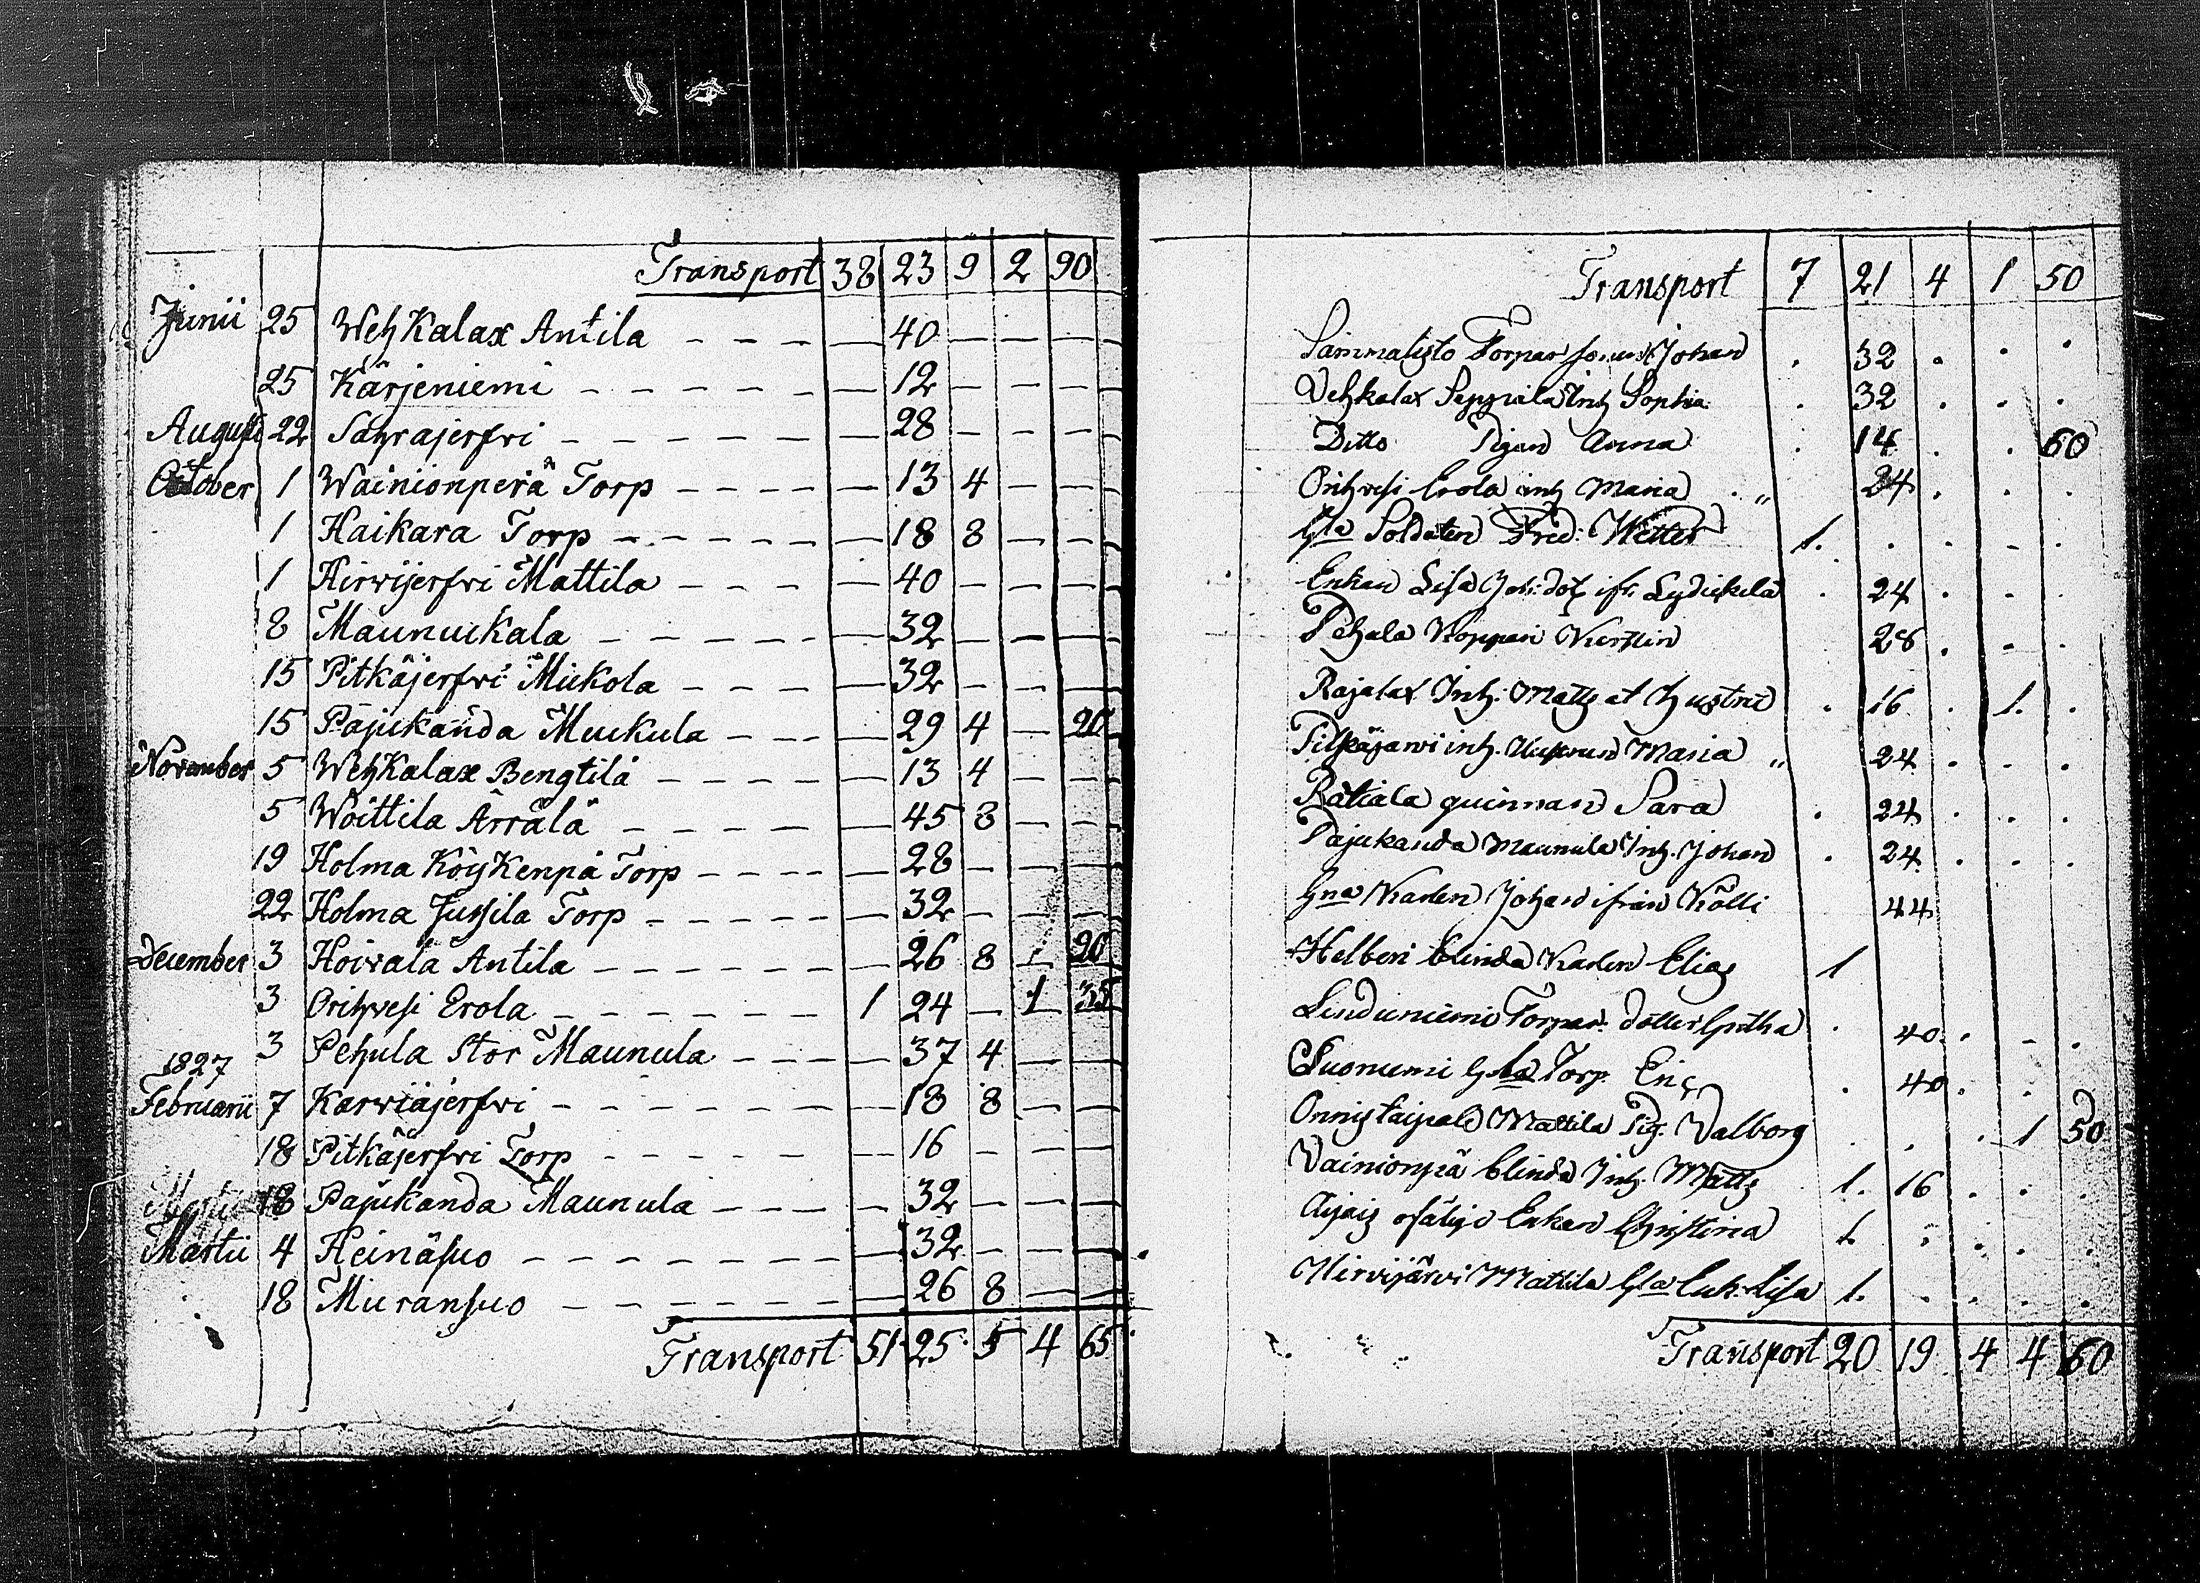 Transport 38 23 9 2 90
Junii 25 Wehkalax Antila — 40 — — —
25 Kärjeniemi — 12 — — —
Augusti 22 Sahrajerfvi — 28 — — —
October 1 Wainionperä Torp — 13 4 — —
1 Haikara Torp — 18 8 — —
1 Hirvijerfvi Mattila — 40 — — —
8 Maunuikala — 32 — — —
15 Pitkäjerfvi Mickola — 32 — — —
15 Pajukanda Muckula — 29 4 — 20
November 5 Wehkalax Bengtilä — 13 4 — —
5 Woittila Ärrälä — 45 8 — —
19 Holma Köykenpä Torp — 28 — — —
22 Holma Jussila Torp — 32 — — —
December 3 Hoivala Antila — 26 8 — 20
3 Orihvesi Erola 1 24 — 1 35
3 Pehula Stor Maunula — 37 4 — —
1827
Februarii 7 Karviäjerfvi — 18 8 — —
18 Pitkäjerfvi Torp — 16 — — —
18 Pajukanda Maunula — 32 — — —
Martii 4 Heinäsuo — 32 — — —
18 Muransuo — 26 8 — —
Transport 51 25 5 4 65
Transport 7 21 4 1 50
Sammalisto Torpar Johan . 32 . . .
Vehkalax Seppiala Inh Sophia . 32 . . .
Ditto Pigan Anna . 14 . . 60
Orihvesi Erola inh Maria . 24 . . .
Gla Soldaten Fred: Wetter 1. . . - .
Enkan Lisa Joh: dot ifr. Lydickilä . 24 . . .
Pehula Koppari Kerstin . 28 . . .
Rajalax Inh: Matts et hustru . 16 . 1. .
Pitkäjärvi inh. Maria „ 24 . . .
Rätiala quinnan Sara . 24 . . .
Pajukanda Maunula Inh. Johan . 24 . . .
Gna Karlen Johan ifrån Kölli 44
Helberi blinda Karlen Elias 1
Linduniemi Torpar: dotter Gretha . 40 . - .
Suonumi Gla Torp. Eric . 40 . .
Onnistaipale Mattila Pig. Valborg . . . 1 50
Vainionpä blinda Inh. Matts 1. 16 . . .
ofärige Enkan Christina 1. . . . .
Hirvijärvi Mattila Gla Enk. Lisa 1. . . . .
Transport 20 19 4 4 60